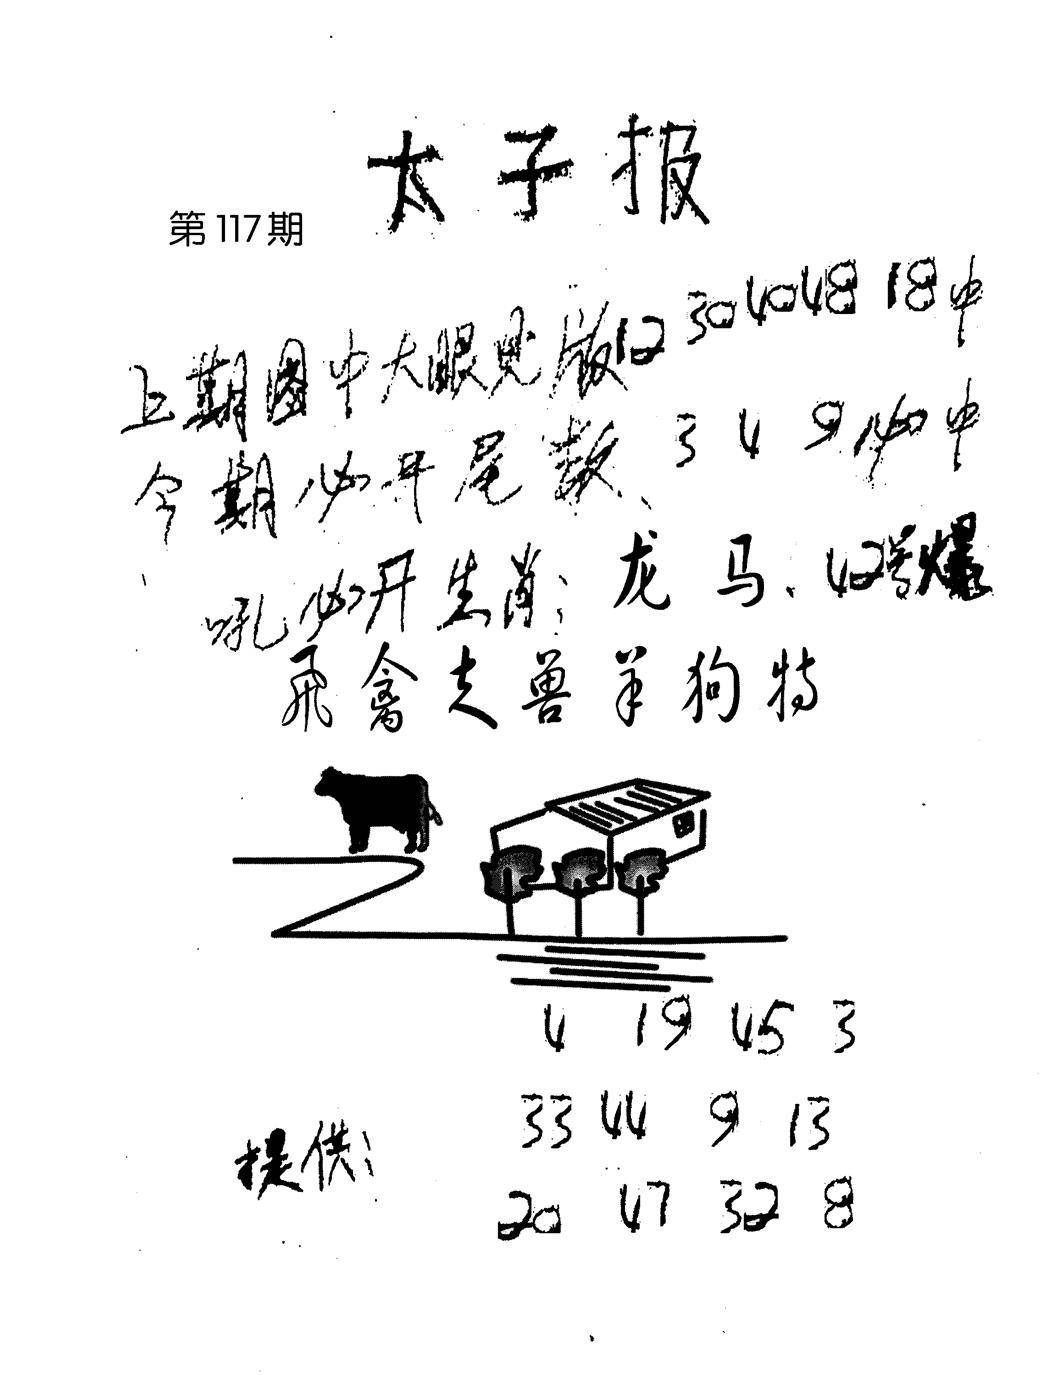 太子报
第117期
上期图中大眼见版12 30 40 48 18中
今期必开尾数、3 4 9必中
吼必开生肖：龙 马、42号爆
飛禽走兽羊狗特
4 19 45 3
33 44 9 13
提供：
20 47 32 8